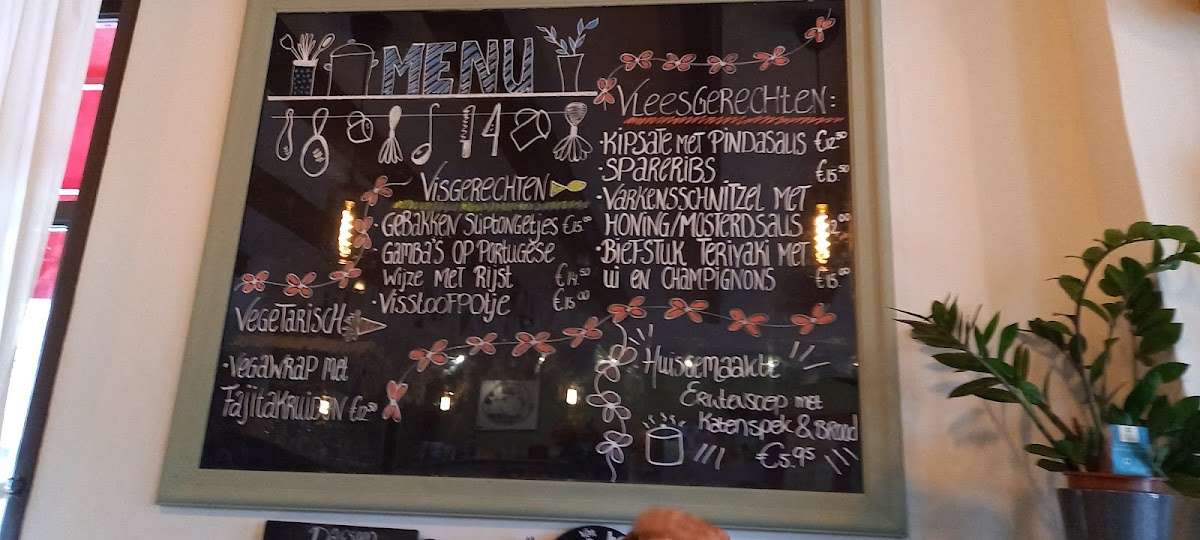 MENU
VLEESGERECHTEN:
• KIPSATE MET PINDASAUS €12.50
• SPARERIBS €15.50
• VARKENSSCHNITZEL MET
HONING/MOSTERDSAUS
• BIEFSTUK TERIYAKI MET
UI EN CHAMPIGNONS €15.00
VISGERECHTEN
• GEBAKKEN SLIPTONGETJES €15.00
GAMBA'S OP PORTUGESE
WIJZE MET RIJST €14.50
• VISSTOOFPOTJE €15.00
VEGETARISCH
• VEGAWRAP MET
FAJITAKRUIDEN €12.50
HUISGEMAAKTE
ERWTENSOEP MET
KATENSPEK & BROOD
€5.95